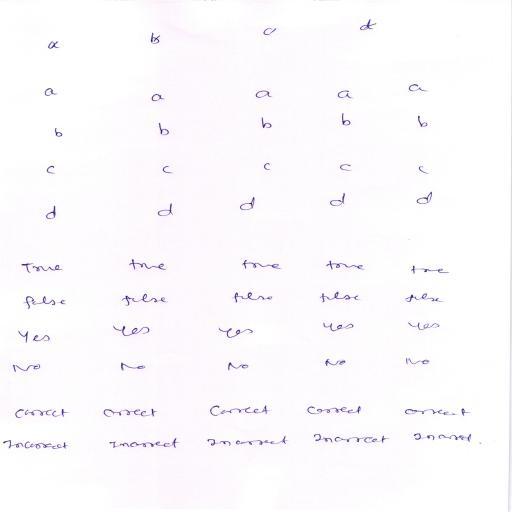 a b c d
a a a a a
b b b b b
c c c c c
d d d d d
True true true true true
false false false false false
Yes Yes Yes Yes Yes
No No No No No
Correct correct Correct Correct correct
Incorrect Incorrect Incorrect Incorrect